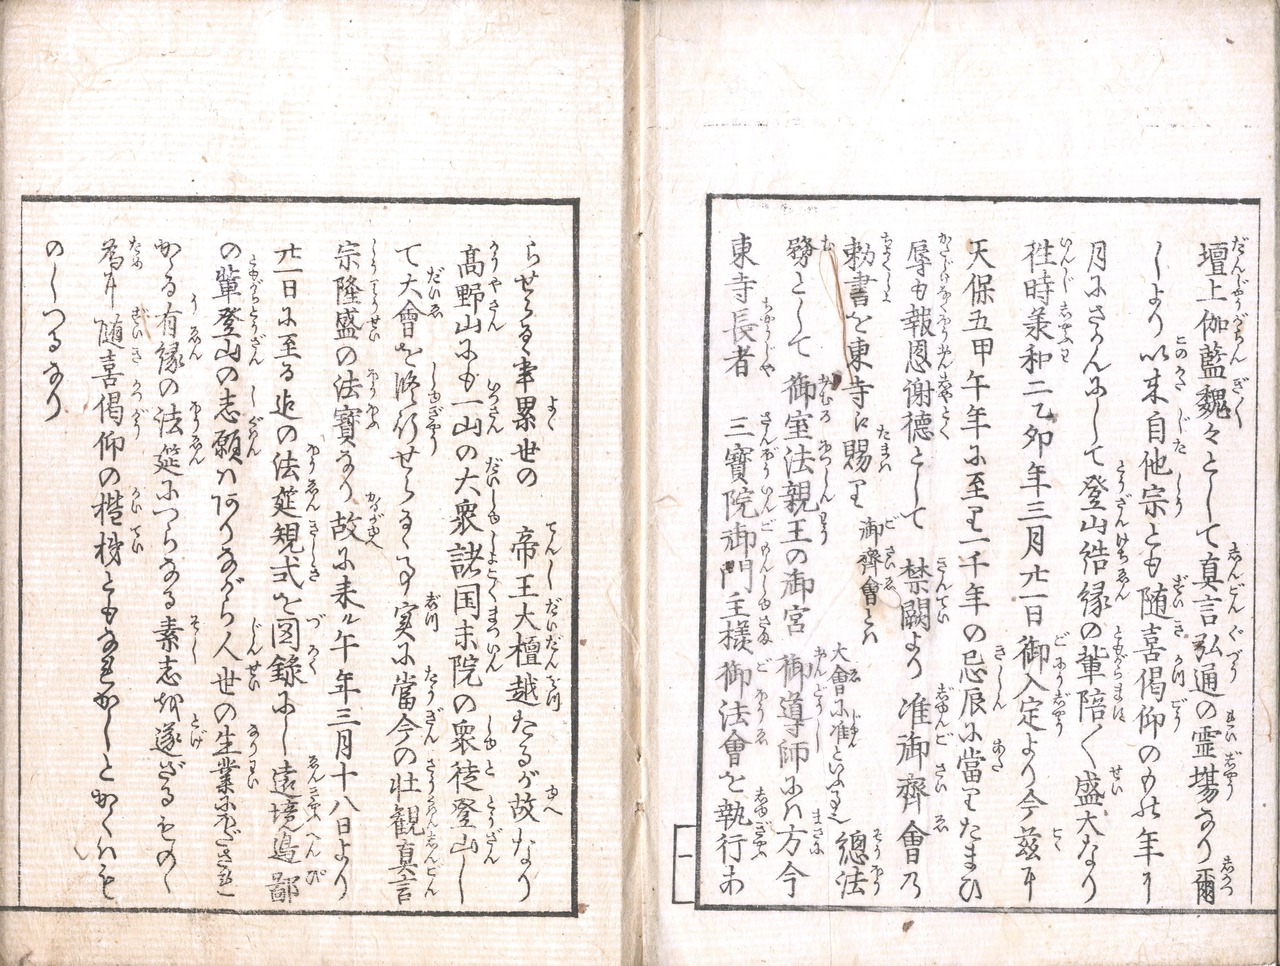 壇上伽藍魏々として真言弘通の霊場なり爾
しより以来自他宗とも随喜偈仰のもの年々
月々にさかんにして登山結縁の輩陪く盛大なり
徃時羕和二乙卯年三月廿一日御入定より今茲
天保五甲午年に至り一千年の忌辰に當りたまひ
辱も報恩謝徳として 禁闕より 准御齊會乃
勅書を東寺に賜り 御齊會とハ大會に准といふこと也 總法
務として 御室法親王の御宮 御導師にハ方今
東寺長者 三寳院御門主様御法會を執行あ
らせらるゝ事累世の 帝王大檀越たるが故なり
髙野山にも一山の大衆諸国末院の衆徒登山し
て大會を修行せらるゝ事実に當今の壮観真言
宗隆盛の法寳なり故に来ル午年三月十八日より
廿一日に至る迄の法莚規式を図録にし遠境鳥鄙
の輩登山の志願ハありながら人世の生業にほだされ
かゝる有縁の法莚につらなる素志を遂ざるものゝ
為に随喜偈仰の楷梯ともなれかしとかくハも
のしつるなり
一